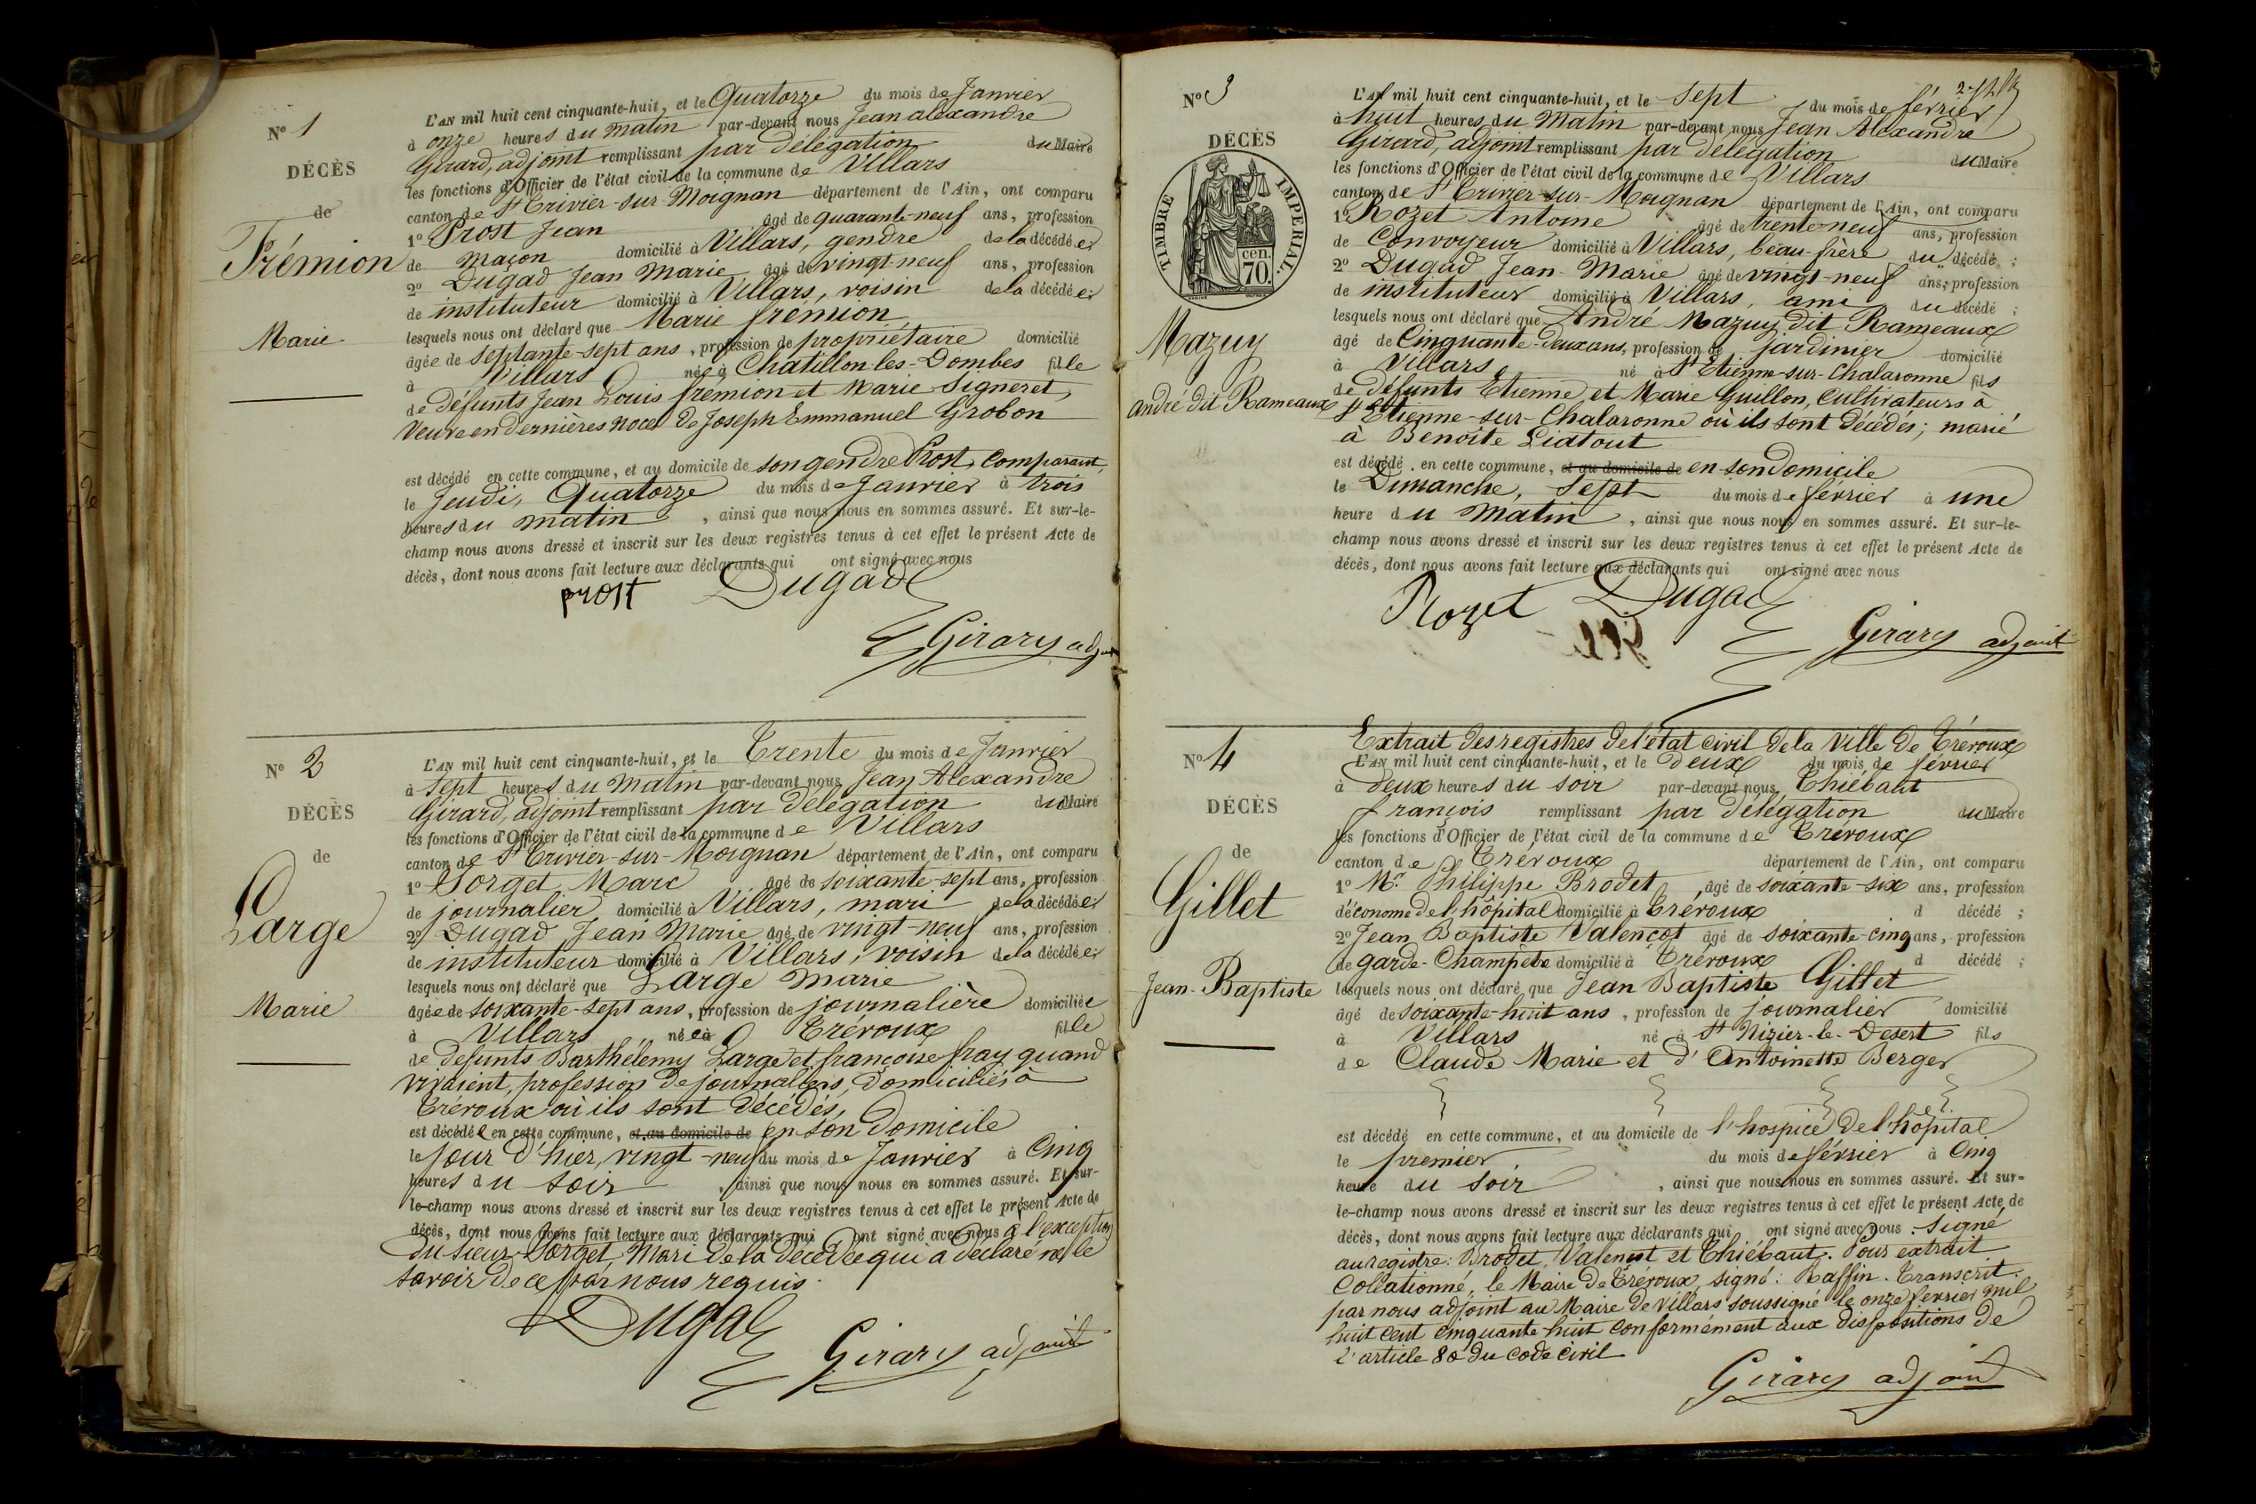 N° 1
DÉCÈS
de
Frémion
Marie
L'AN mil huit cent cinquante-huit, et le Quatorze du mois de Janvier
à onze heures du matin par-devant nous Jean alexandre
Girard, adjoint remplissant par délégation du Maire
les fonctions d'Officier de l'état civil de la commune de Villars
canton de St Trivier-sur-Moignan département de l'Ain, ont comparu
1° Prost Jean âgé de quarante-neuf ans, profession
de maçon domicilié à Villars, gendre de la décédée;
2° Dugad Jean Marie âgé de vingt-neuf ans, profession
de instituteur domicilié à Villars, voisin de la décédée;
lesquels nous ont déclaré que Marie frémion
âgée de septante-sept ans, profession de propriétaire domicilié
à Villars née à Chatillon-les-Dombes fille
de défunts Jean Louis frémion et Marie Signeret,
Veuve en dernières noces de Joseph Emmanuel Grobon
est décédé en cette commune, et au domicile de son gendre Prost, comparant,
le Jeudi, Quatorze du mois de Janvier à trois
heures du matin, ainsi que nous nous en sommes assuré. Et sur-le-
champ nous avons dressé et inscrit sur les deux registres tenus à cet effet le présent Acte de
décès, dont nous avons fait lecture aux déclarants qui ont signé avec nous
prost Dugad
Girard adj
N° 2
DÉCÈS
de
Large
Marie
L'AN mil huit cent cinquante-huit, et le Trente du mois de Janvier
à sept heures du matin par-devant nous Jean Alexandre
Girard, adjoint remplissant par délégation du Maire
les fonctions d'Officier de l'état civil de la commune de Villars
canton de St Trivier-sur-Moignan département de l'Ain, ont comparu
1° Sorget Marc âgé de soixante-sept ans, profession
de journalier, domicilié à Villars, mari de la décédée;
2° Dugad Jean Marie âgé de vingt-neuf ans, profession
de instituteur domicilié à Villars, voisin de la décédée;
lesquels nous ont déclaré que Large Marie
âgée de soixante-sept ans, profession de journalière domiciliée
à Villars née à Trévoux fille
de défunts Barthélemy Large et françoise fray quand
vivaient, profession de journaliers, domiciliés à
Trévoux où ils sont décédés,
est décédée en cette commune, et au domicile de en son domicile
le jour d'hier, vingt-neuf du mois de Janvier à cinq
heures du soir, ainsi que nous nous en sommes assuré. Et sur-
le-champ nous avons dressé et inscrit sur les deux registres tenus à cet effet le présent Acte de
décès, dont nous avons fait lecture aux déclarants qui ont signé avec nous à l'exception
du sieur Sorget, mari de la décédée qui a déclaré ne le
savoir de ce par nous requis.
Dugad
Girard adjoint
N° 3
DÉCÈS
TIMBRE IMPÉRIAL.
cen.
70.
Mazuy
andré dit Rameaux
L'AN mil huit cent cinquante-huit, et le sept du mois de février
à huit heures du matin par-devant nous Jean Alexandre
Girard, adjoint remplissant par délégation du Maire
les fonctions d'Officier de l'état civil de la commune de Villars
canton de St Trivier-sur-Moignan département de l'Ain, ont comparu
1° Rozet Antoine âgé de trente-neuf ans, profession
de Convoyeur domicilié à Villars, beau-frère du décédé;
2° Dugad Jean-Marie âgé de vingt-neuf ans, profession
de instituteur domicilié à Villars, ami du décédé;
lesquels nous ont déclaré que André Mazuy dit Rameaux
âgé de Cinquante-deux ans, profession de jardinier domicilié
à Villars né à St Etienne-sur-Chalaronne fils
de défunts Etienne, et Marie Guillon, cultivateurs à
St Etienne-sur-Chalaronne où ils sont décédés; marié
à Benoite Liatout
est décédé en cette commune, et au domicile de en son domicile
le Dimanche, sept du mois de février à une
heure du matin, ainsi que nous nous en sommes assuré. Et sur-le-
champ nous avons dressé et inscrit sur les deux registres tenus à cet effet le présent Acte de
décès, dont nous avons fait lecture aux déclarants qui ont signé avec nous
Rozet Dugad
Girard adjoint
N° 4
DÉCÈS
de
Gillet
Jean-Baptiste
Extrait des registres de l'état civil de la ville de Trévoux
L'AN mil huit cent cinquante-huit, et le deux du mois de février
à deux heures du soir par-devant nous, Thiébaut
françois remplissant par délégation du Maire
les fonctions d'Officier de l'état civil de la commune de Trévoux
canton de Trévoux département de l'Ain, ont comparu
1° Mr. Philippe Brodet, âgé de soixante-six ans, profession
d'économe de l'hôpital domicilié à Trévoux d décédé;
2° Jean Baptiste Valençot âgé de soixante-cinq ans, profession
de garde-Champêtre domicilié à Trévoux d décédé;
lesquels nous ont déclaré que Jean Baptiste Gillet
âgé de soixante-huit ans, profession de journalier domicilié
à Villars né à St Nizier-le-Desert fils
de Claude Marie et d'Antoinette Berger
est décédé en cette commune, et au domicile de l'hospice de l'hôpital
le premier du mois de février à cinq
heure du soir, ainsi que nous nous en sommes assuré. Et sur-
le-champ nous avons dressé et inscrit sur les deux registres tenus à cet effet le présent Acte de
décès, dont nous avons fait lecture aux déclarants qui ont signé avec nous. Signé
au registre: Brodet, Valençot et Thiébaut. Pour extrait
Collationné, le Maire de Trévoux, signé: Raffin. Transcrit
par nous adjoint au Maire de Villars soussigné le onze février mil
huit cent cinquante huit conformément aux dispositions de
l'article 80 du code civil
Girard adjoint